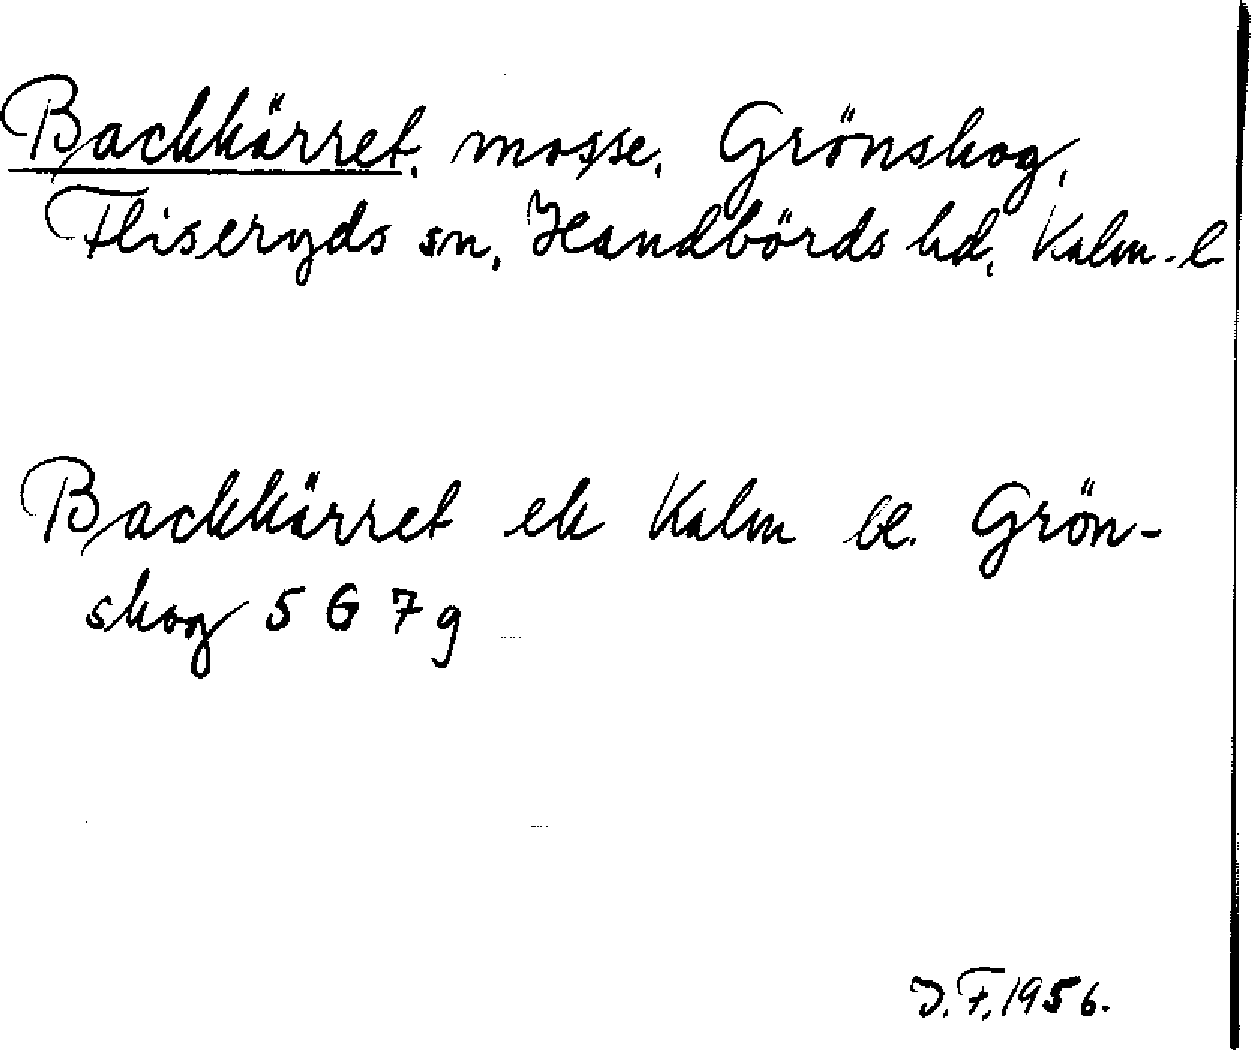 Backkärret, mosse, Grönskog,
Fliseryds sn, Handbörds hd, Kalm. l
Backkärret ek Kalm bl. Grön-
skog 5 G 7 g
J. F. 1956.